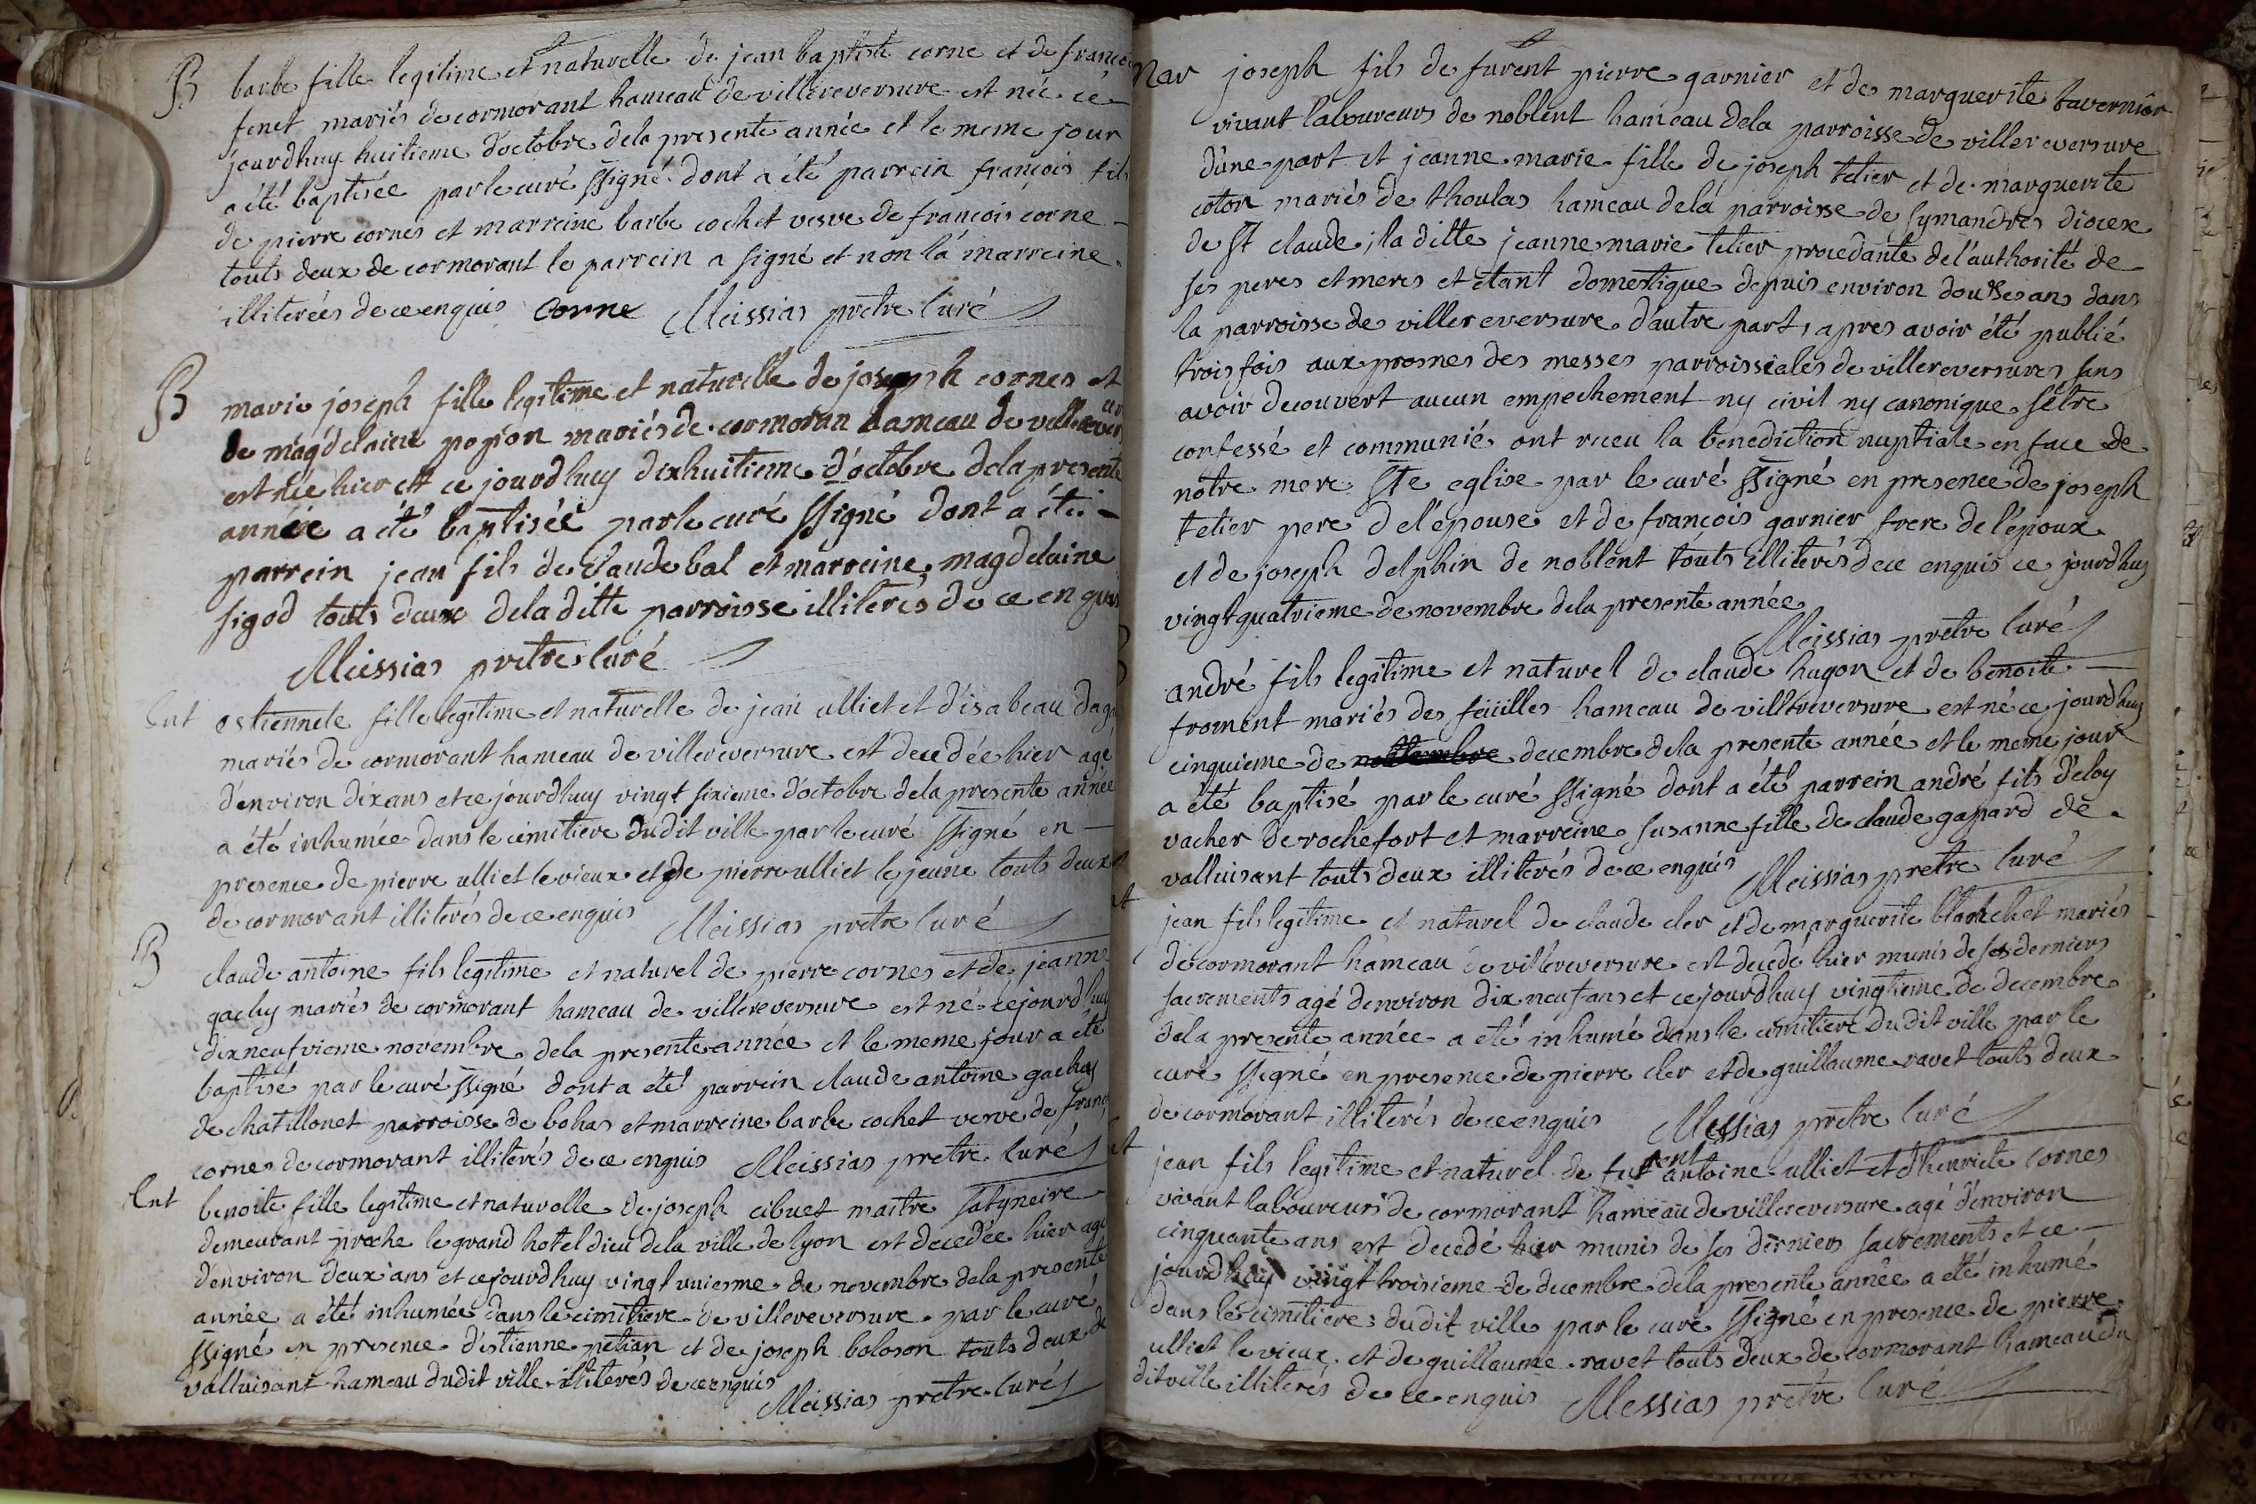 B barbe fille legitime et naturelle de jean baptiste corne et de françoi
fenet mariés de cormorant hameau de villereversure est née ce
jourdhuy huitieme d'octobre dela presente année et le meme jour
a été baptisée par le curé ssigné dont a été parrein françois fils
de pierre cornes et marreine barbe cochet vesve de françois corne
touts deux de cormorant le parrein a signé et non la marreine
illiterées de ce enquis corne Meissias prêtre curé
B marie joseph fille legitime et naturelle de joseph cornes et
de magdelaine popion mariés de cormoran hameau de villerever
est née hier et ce jourdhuy dixhuitieme d'octobre dela presente
année a été baptisée par le curé ssigné dont a été
parrein jean fils de claude bal et marreine magdelaine
sigod touts deux dela ditte parroisse illiterés de ce enquis
Meissias prêtre curé
Ent estiennete fille legitime et naturelle de jean ulliet et d'isabeau daga
mariés de cormorant hameau de villereversure est decedée hier agé
d'environ dix ans et ce jourdhuy vingt sixieme d'octobre dela presente année
a été inhumée dans le cimitiere dudit ville par le curé ssigné en
presence de pierre ulliet le vieux et de pierre ulliet le jeune touts deux
de cormorant illiterés de ce enquis Meissias prêtre curé
B claude antoine fils legitime et naturel de pierre cornes et de jeanne
gachy mariés de cormorant hameau de villereversure est né ce jourdhuy
dixneufvieme novembre dela presente année et le meme jour a été
baptisé par le curé ssigné dont a été parrein claude antoine gachuy
de chatillonet parroisse de bohas et marreine barbe cochet vesve de franç
cornes de cormorant illiterés de ce enquis Meissias prêtre curé
Ent benoite fille legitime et naturelle de joseph cibuet maitre satgneire
demeurant proche le grand hotel dieu dela ville de lyon est decedée hier agé
d'environ deux ans et ce jourdhuy vingt unieme de novembre dela presente
année a été inhumée dans le cimitiere de villereversure par le curé
ssigné en presence d'estienne petian et de joseph boloson touts deux de
valluisant hameau dudit ville illiterés de ce enquis
Meissias prêtre curé
Mar joseph fils de furent pierre garnier et de marguerite tavernier
vivant laboureurs de noblent hameau dela parroisse de villereversure
d'une part et jeanne marie fille de joseph tetier et de marguerite
coton mariés de thoulas hameau dela parroisse de symandres diocese
de St claude, la ditte jeanne marie tetier procedante de l'authorité de
ses peres et meres et etant domestique depuis environ douses ans dans
la parroisse de villereversure d'autre part, apres avoir été publié
trois fois aux prosnes des messes parroissiales de villereversures sans
avoir decouvert aucun empechement ny civil ny canonique s'être
confessé et communié ont receu la benediction nuptiale en face de
notre mere Ste eglise par le curé ssigné en presence de joseph
tetier pere de l'epouse et de françois garnier frere de l'époux
et de joseph delphin de noblent touts illiterés de ce enquis ce jourdhuy
vingt quatrieme de novembre dela presente année
Meissias prêtre curé
andré fils legitime et naturel de claude hugon et de benoite
froment mariés des feüilles hameau de villereversure est né ce jourdhuy
cinquieme de novembre decembre dela presente année et le meme jour
a été baptisé par le curé ssigné dont a été parrein andré fils d'eloy
vacher de rochefort et marreine susanne fille de claude gapard de
valluisant touts deux illiterés de ce enquis Meissias prêtre curé
jean fils legitime et naturel de claude cler et de marguerite blanchet mariés
de cormorant hameau de villereversure est decedé hier munis de ses derniers
sacrements agé denviron dix neuf ans et ce jourdhuy vingtieme de decembre
dela presente année a eté inhumé dans le cimitiere dudit ville par le
curé ssigné en presence de pierre cler et de guillaume ravet touts deux
de cormorant illiterés de ce enquis Messias prêtre curé
jean fils legitime et naturel de furent antoine ulliet et d'henriete cornes
vivant laboureurs de cormorant hameau de villereversure agé d'environ
cinquante ans est decedé hier munis de ses derniers sacrements et ce
jourdhuy vingt troisieme de decembre dela presente année a été inhumé
dans le cimitiere dudit ville par le curé ssigné en presence de pierre
ulliet le vieux et de guillaume ravet touts deux de cormorant hameau du
dit ville illiterés de ce enquis Messias prêtre curé